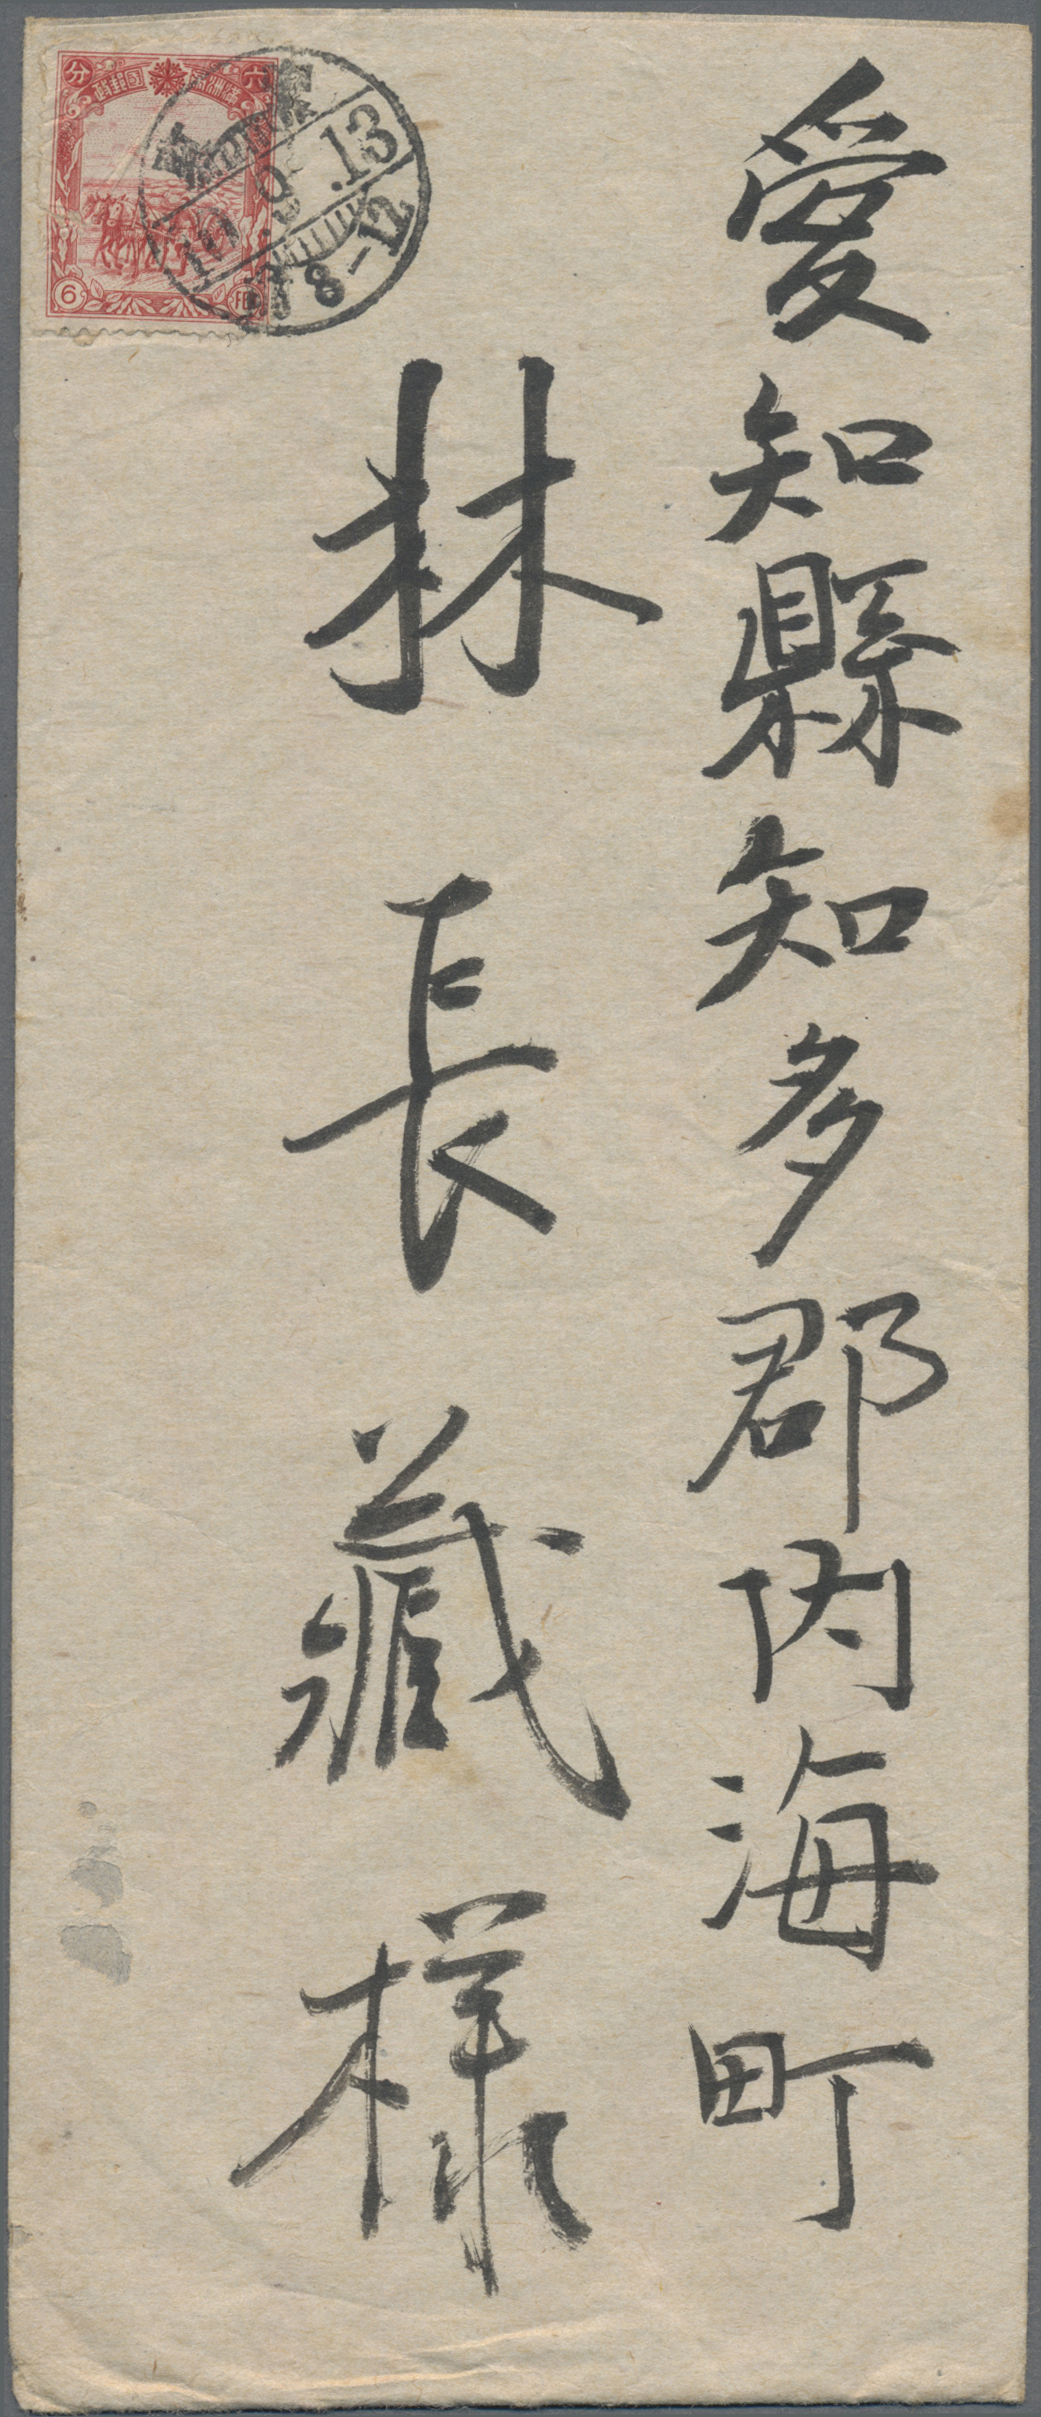 愛知縣知多郡内海町
林長藏様
六 滿洲國郵政 分
6
10.9.13
8-12